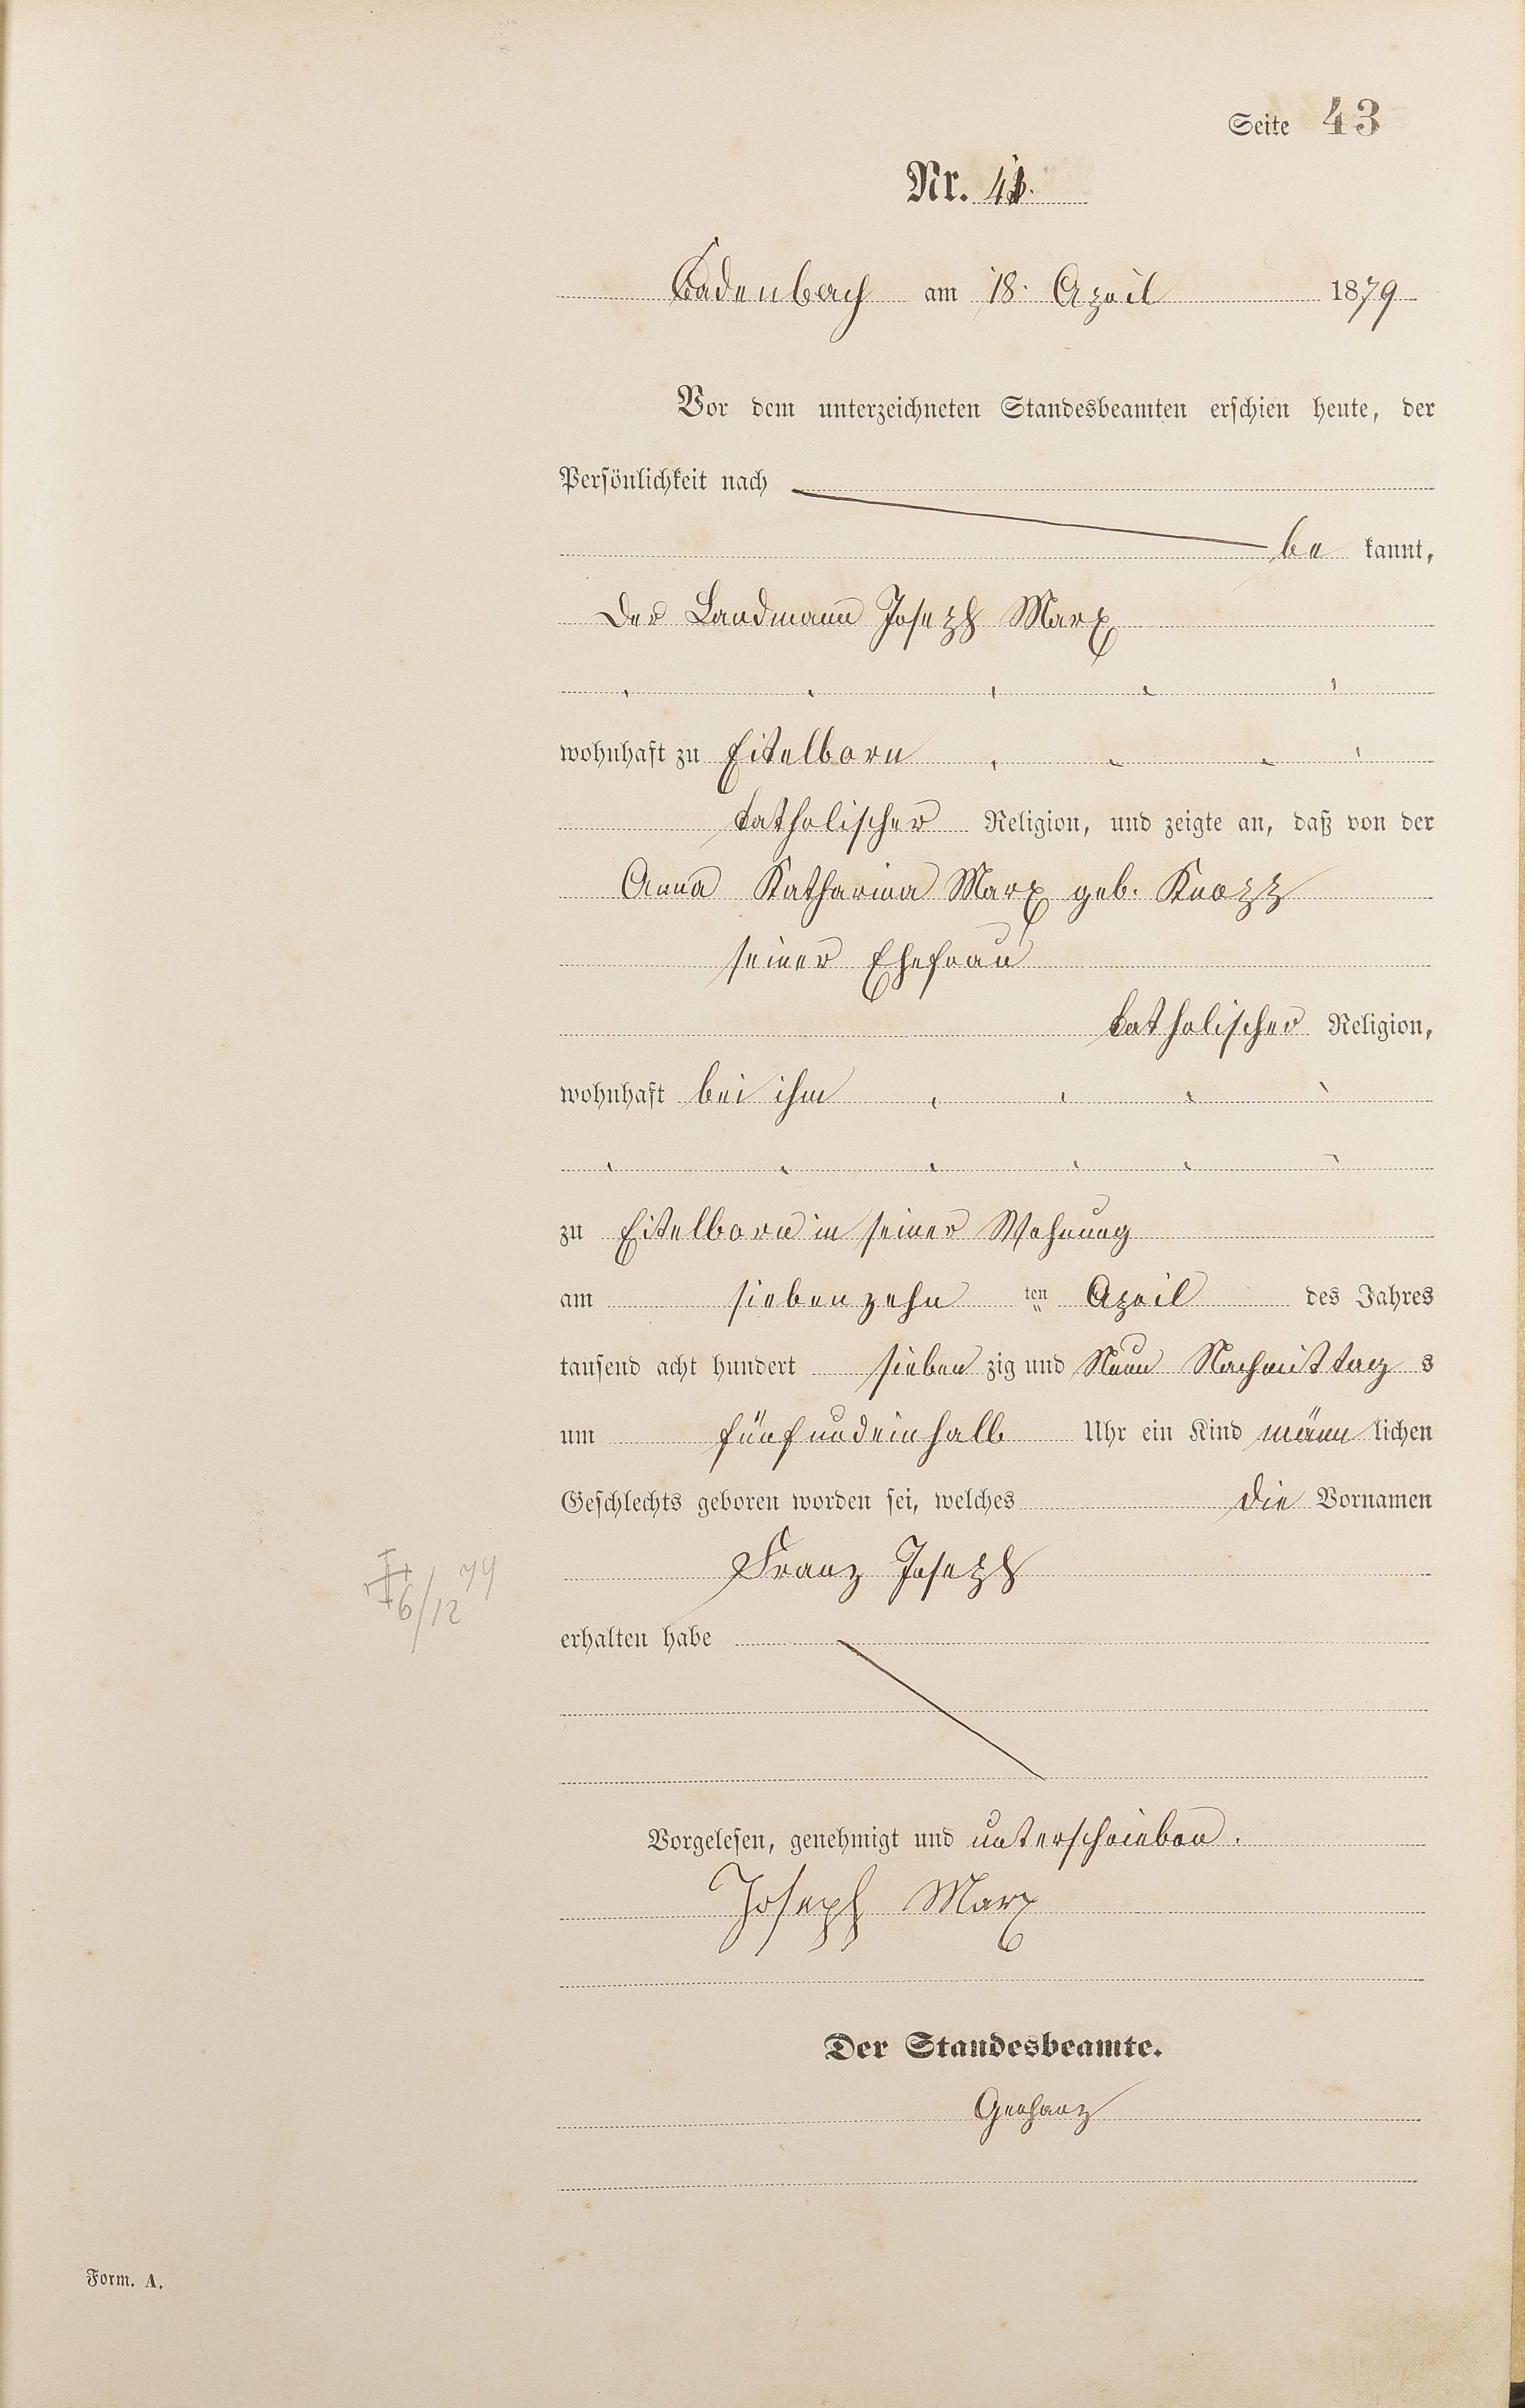 Seite 43
Nr. 41.
Cadenbach am 18. April 1879
Vor dem unterzeichneten Standesbeamten erschien heute, der
Persönlichkeit nach
be kannt,
der Landmann Joseph Marx
wohnhaft zu Eitelborn
katholischer Religion, und zeigte an, daß von der
Anna Katharina Marx geb. Knopp
seiner Ehefrau
katholischer Religion,
wohnhaft bei ihm
zu Eitelborn in seiner Wohnung
am siebenzehn ten April des Jahres
tausend acht hundert sieben zig und Neun Nachmittag s
um fünfundeinhalb Uhr ein Kind männ lichen
Geschlechts geboren worden sei, welches die Vornamen
Franz Joseph
6/12 79
erhalten habe
Vorgelesen, genehmigt und unterschrieben.
Joseph Marx
Der Standesbeamte.
Form. A.